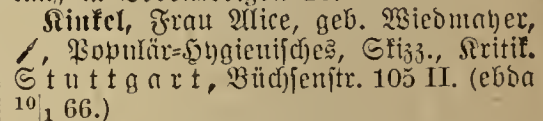 Kinkel, Frau Alice, geb. Wiedmayer,
/, Populär=Hygienisches, Skizz., Kritik.
Stuttgart, Büchsenstr. 105 II. (ebda
10|1 66.)